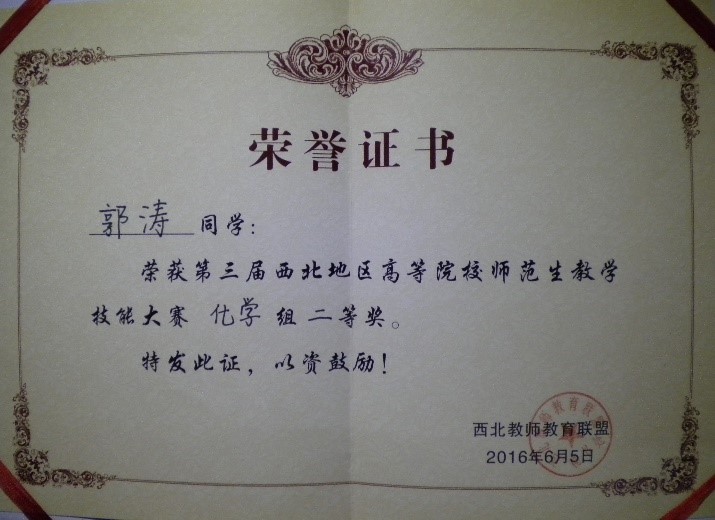 荣誉证书
郭涛 同学：
荣获第三届西北地区高等院校师范生教学
技能大赛 化学 组 二等奖。
特发此证，以资鼓励！
西北教师教育联盟
2016年6月5日